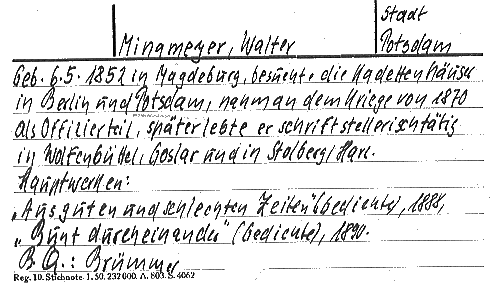 Stadt
Mingmeyer, Walter Potsdam
Geb. 6.5. 1852 in Magdeburg, besucht. die Kadettenhäuser
in Berlin und Potsdam, nahm an dem Kriege von 1870
als Offizier teil, später lebte er schriftstellerisch tätig
in Wolfenbüttel, Goslar und in Stolberg/Harz.
Hauptwerken:
„Aus guten und schlechten Zeiten" (Gedichte), 1888,
„Bunt durcheinander" (Gedichte), 1890.
B.Q.: Brümmer
Reg. 10. Stichnote. 1. 50. 232000. A. 803. S. 4062